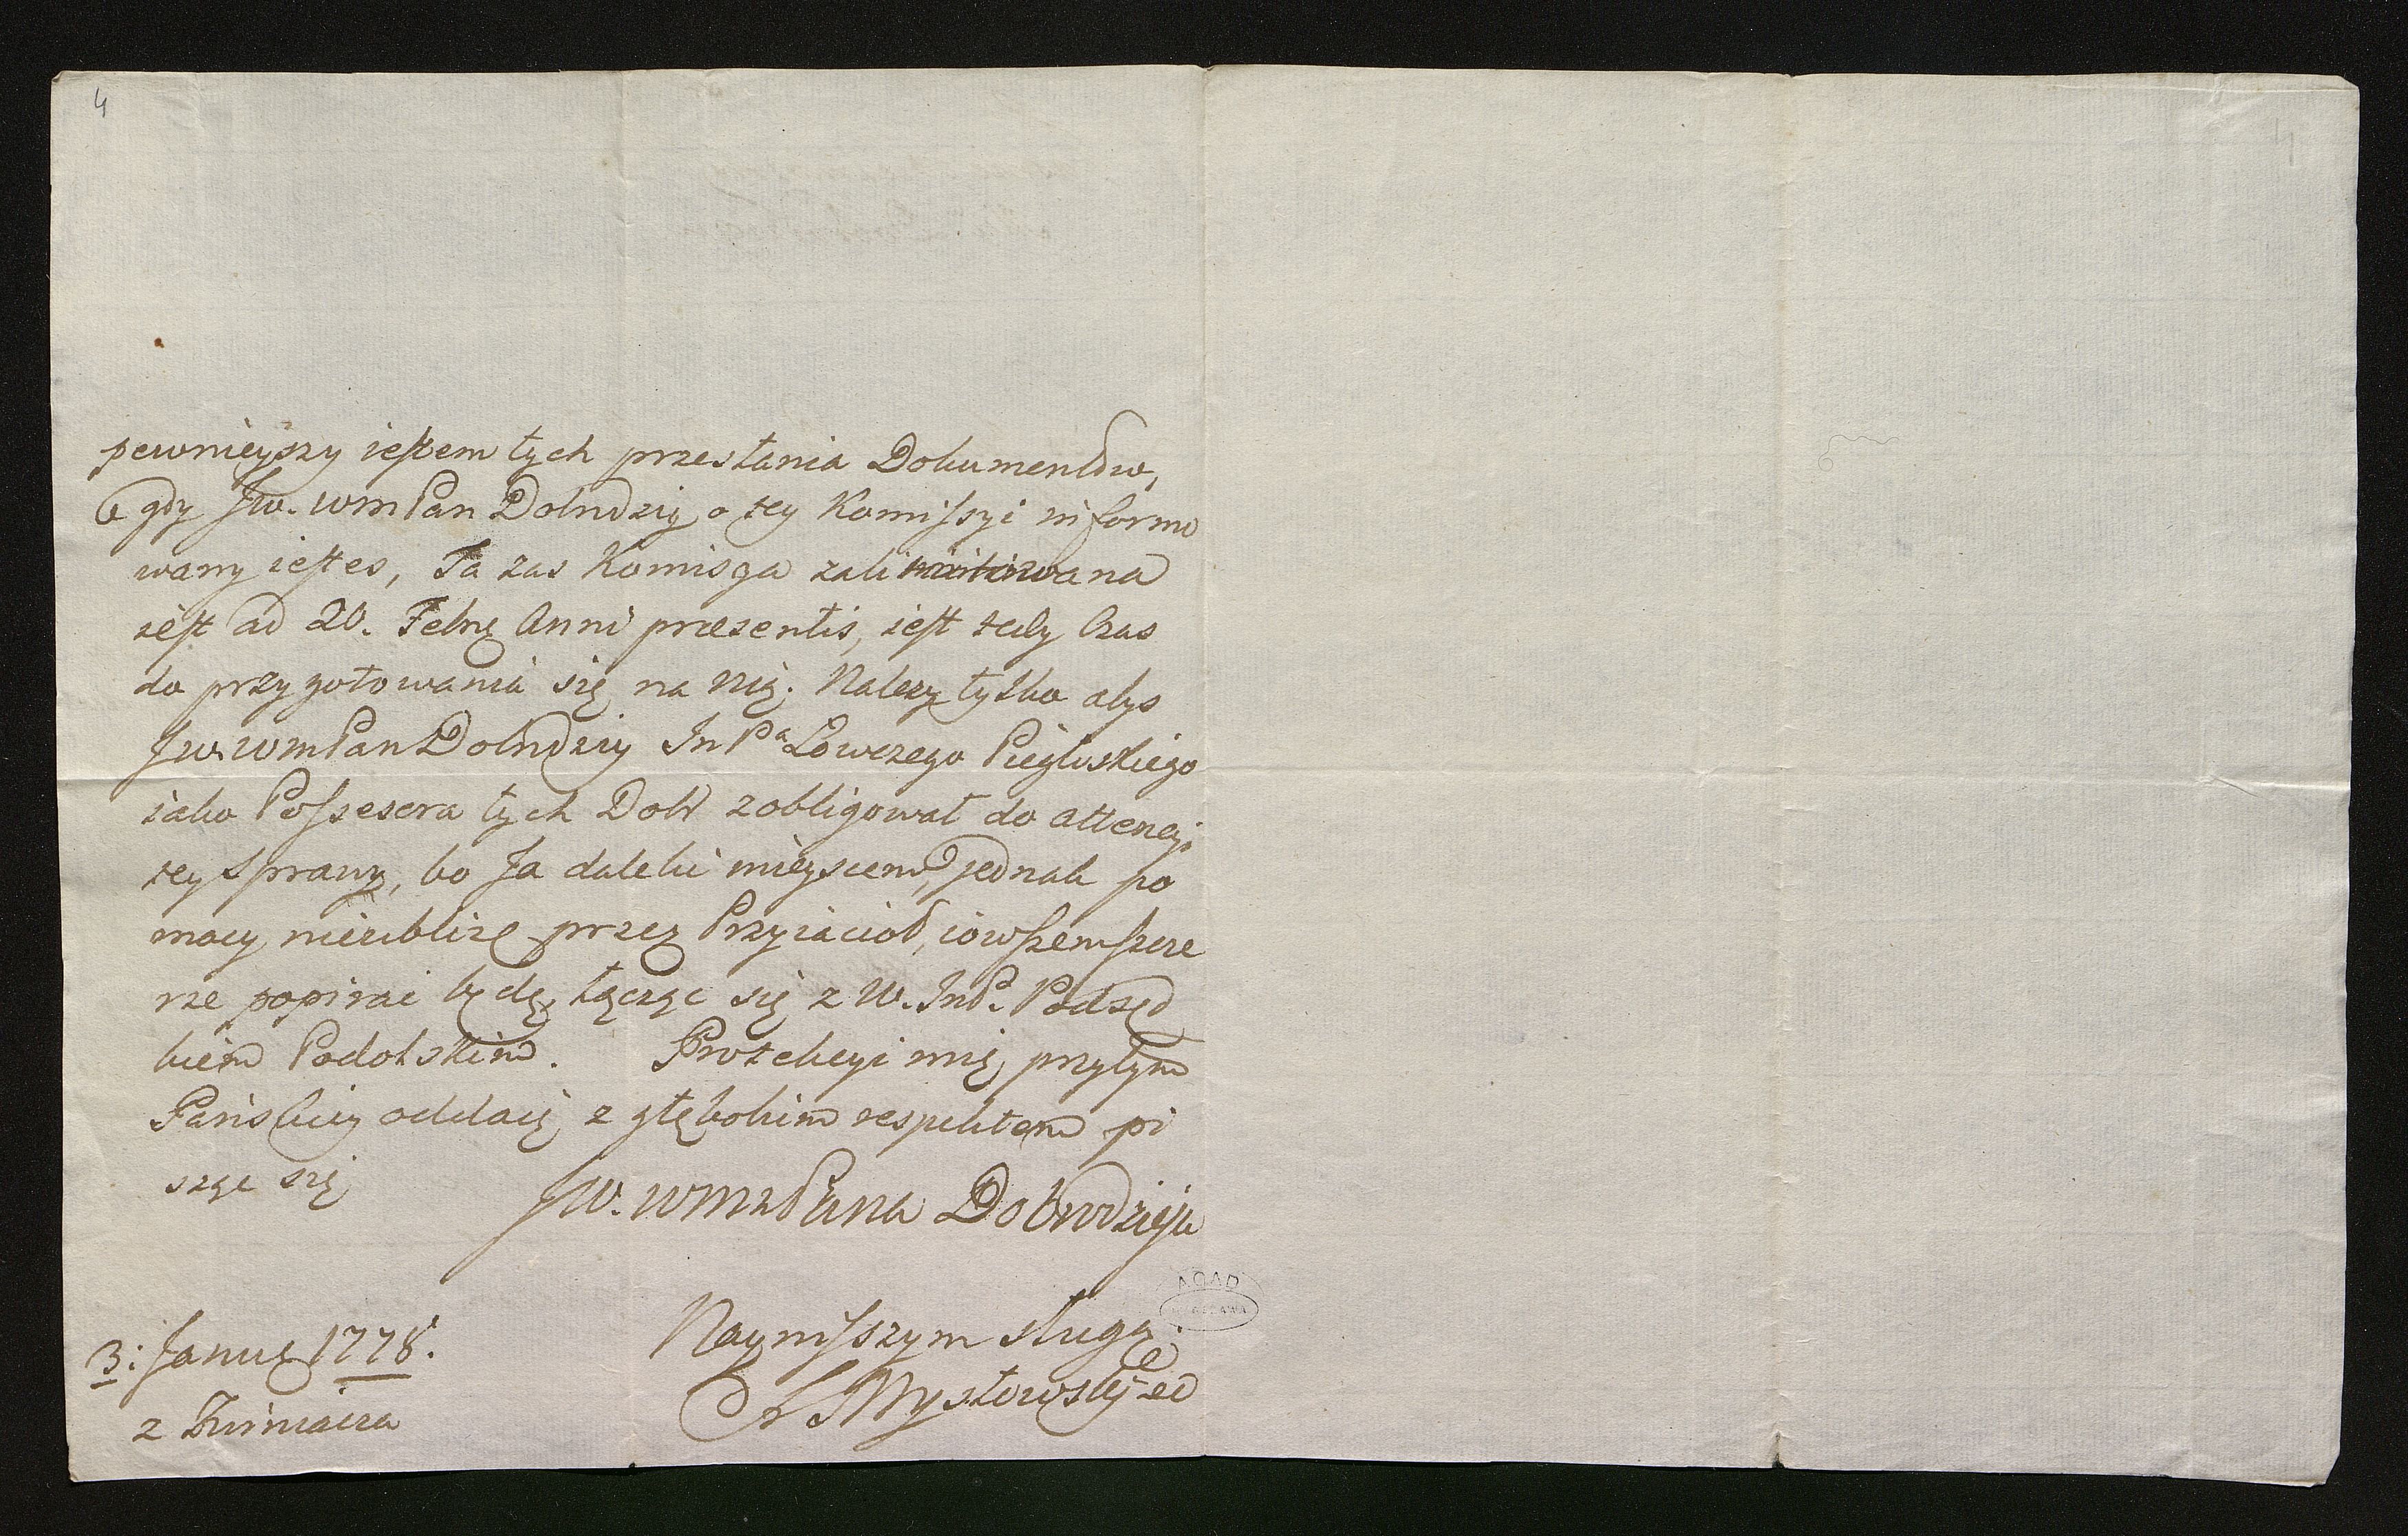 4
4
pewnieyszy iestem tych przesłania Dokumentów,
a gdy Jw. wmPan Dobrodziey o tey Komissyi informo
wany iestes, Ta zas Komisya zalimitowana
iest ad 20. Febrę Anni præsentis, iest tedy Czas
do przygotowania się na nię. Nalezy tylko abys
Jw. wmPan Dobrodziey Im Pa Łowczego Piegłuskiego
iako Possesora tych Dobr zobligował do attencyi
tey Sprawy, bo Ja daleki mieyscem, jednak po
mocy nieubliżę przez Przyiacioł, iowszem szcze
rze popirać będę, łącząc się z W. ImP. Podsęd
kiem Podolskim. Protekcyi mię przytym
Pańskiey oddaię, z głębokim respektem pi
sząc się
Jw. wmzPana Dobrodzieja
Nayniższym sługą
Mysłowsky
3: Januę 1778.
z
AGAD
WARSZAWA